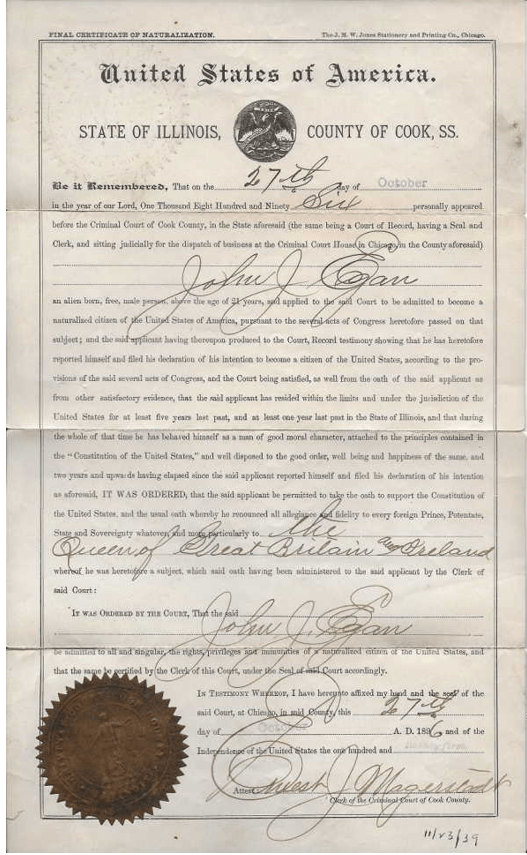 FINAL CERTIFICATE OF NATURALIZATION. The J. M. W. Jones Stationery and Printing Co., Chicago.
United States of America.
STATE OF ILLINOIS, COUNTY OF COOK, SS.
Be it Remembered, That on the 27th day of October
in the year of our Lord, One Thousand Eight Hundred and Ninety Six personally appeared
before the Criminal Court of Cook County, in the State aforesaid (the same being a Court of Record, having a Seal and
Clerk, and sitting judicially for the dispatch of business at the Criminal Court House in Chicago, in the County aforesaid)
John J. Egan
an alien born, free, male person, above the age of 21 years, and applied to the said Court to be admitted to become a
naturalized citizen of the United States of America, pursuant to the several acts of Congress heretofore passed on that
subject; and the said applicant having thereupon produced to the Court, Record testimony showing that he has heretofore
reported himself and filed his declaration of his intention to become a citizen of the United States, according to the pro-
visions of the said several acts of Congress, and the Court being satisfied, as well from the oath of the said applicant as
from other satisfactory evidence, that the said applicant has resided within the limits and under the jurisdiction of the
United States for at least five years last past, and at least one year last past in the State of Illinois, and that during
the whole of that time he has behaved himself as a man of good moral character, attached to the principles contained in
the "Constitution of the United States," and well disposed to the good order, well being and happiness of the same, and
two years and upwards having elapsed since the said applicant reported himself and filed his declaration of his intention
as aforesaid, IT WAS ORDERED, that the said applicant be permitted to take the oath to support the Constitution of
the United States, and the usual oath whereby he renounced all allegiance and fidelity to every foreign Prince, Potentate,
State and Sovereignty whatever, and more particularly to the
Queen of Great Britain and Ireland
whereof he was heretofore a subject, which said oath having been administered to the said applicant by the Clerk of
said Court:
IT WAS ORDERED BY THE COURT, That the said
John J. Egan
be admitted to all and singular, the rights, privileges and immunities of a naturalized citizen of the United States, and
that the same be certified by the Clerk of this Court, under the Seal of said Court accordingly.
IN TESTIMONY WHEREOF, I have hereunto affixed my hand and the seal of the
said Court, at Chicago, in said County, this 27th
day of October A. D. 1896 and of the
Independence of the United States the one hundred and twenty first
Attest Ernest J. Magerstadt
Clerk of the Criminal Court of Cook County.
11/23/39